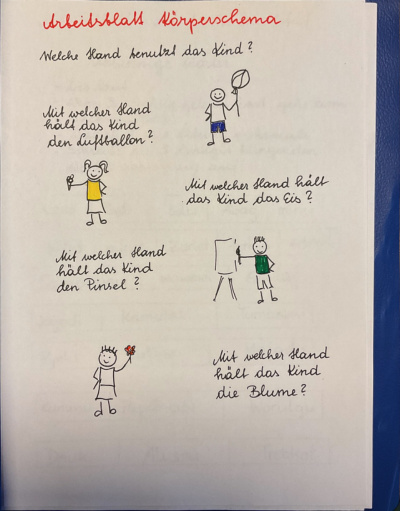 Arbeitsblatt Körperschema
Welche Hand benutzt das Kind?
Mit welcher Hand
hält das Kind
den Luftballon?
Mit welcher Hand hält
das Kind das Eis?
Mit welcher Hand
hält das Kind
den Pinsel?
Mit welcher Hand
hält das Kind
die Blume?